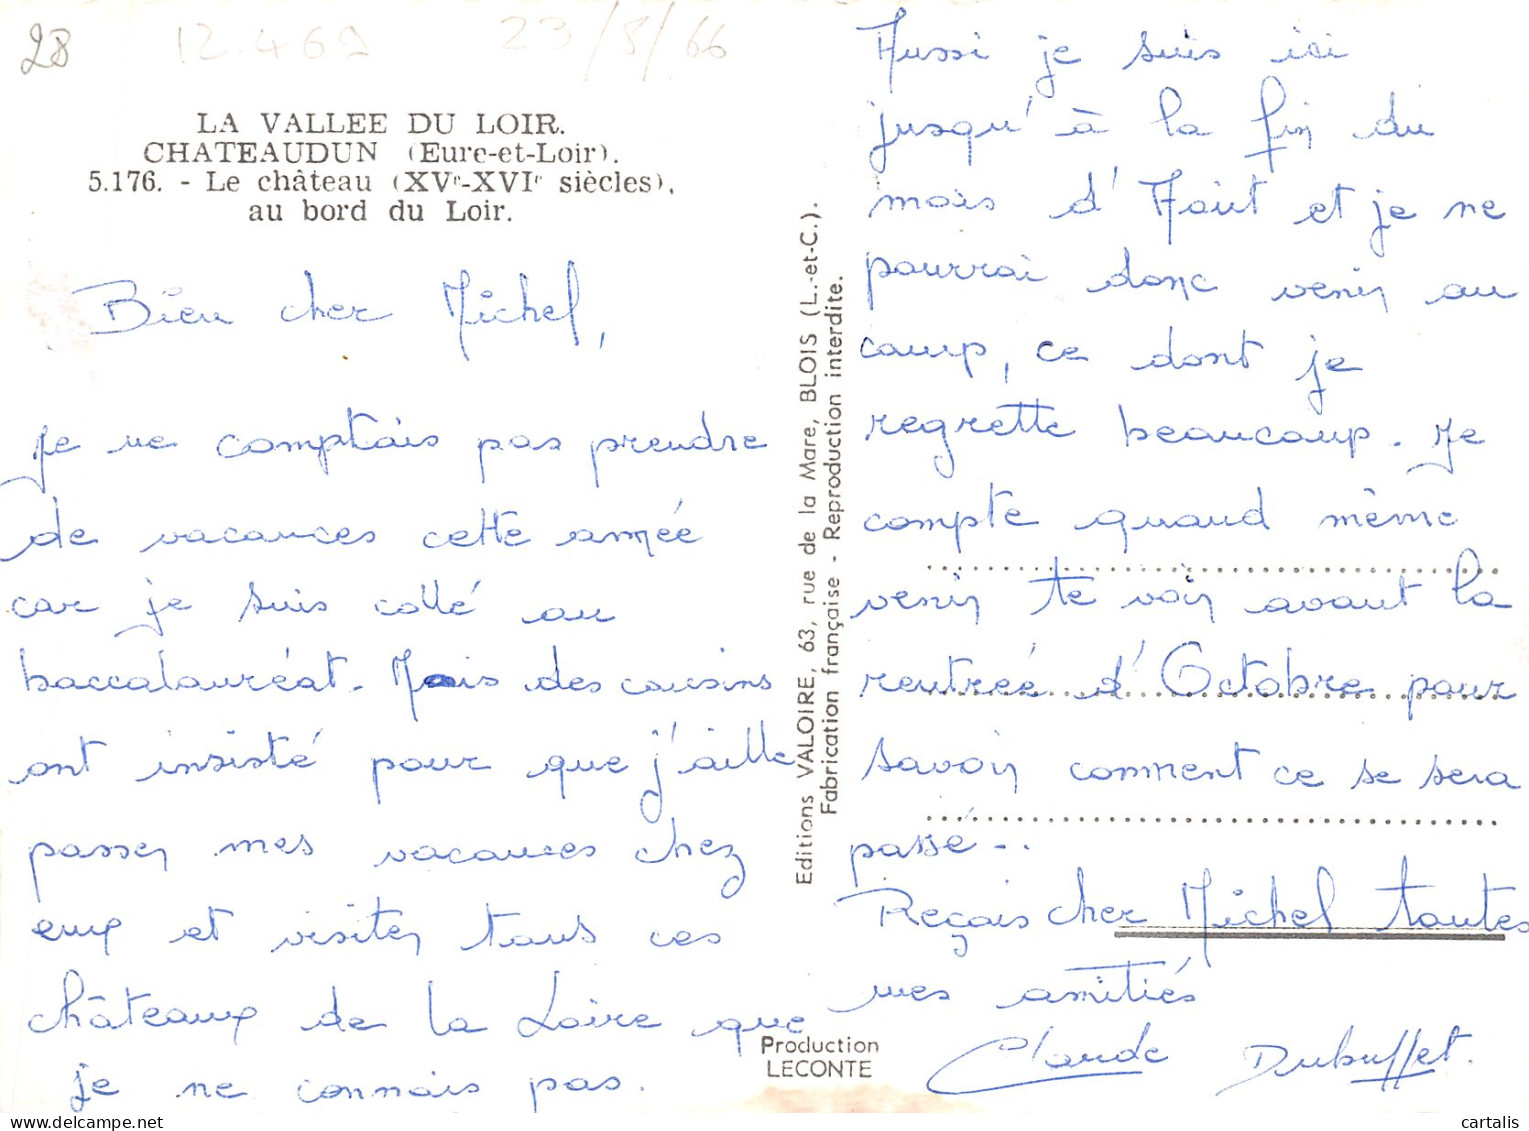 28
12.469
23/8/66
LA VALLEE DU LOIR.
CHATEAUDUN (Eure-et-Loir).
5.176. - Le château (XVe-XVIe siècles),
au bord du Loir.
Bien cher Michel,
Je ne comptais pas prendre
de vacances cette année
car je suis collé au
baccalauréat. Mais des cousins
ont insisté pour que j'aille
passer mes vacances chez
eux et visiter tous ces
châteaux de la Loire que
je ne connais pas.
Editions VALOIRE, 63, rue de la Mare, BLOIS (L.-et-C.).
Fabrication française - Reproduction interdite.
Production
LECONTE
Aussi je suis ici
jusqu'à la fin du
mois d'Août et je ne
pourrai donc venir au
camp, ce dont je
regrette beaucoup. Je
compte quand même
venir te voir avant la
rentrée d'Octobre pour
savoir comment ce se sera
passé...
Reçois cher Michel toutes
mes amitiés
Claude Dubuffet.
cartalis
www.delcampe.net